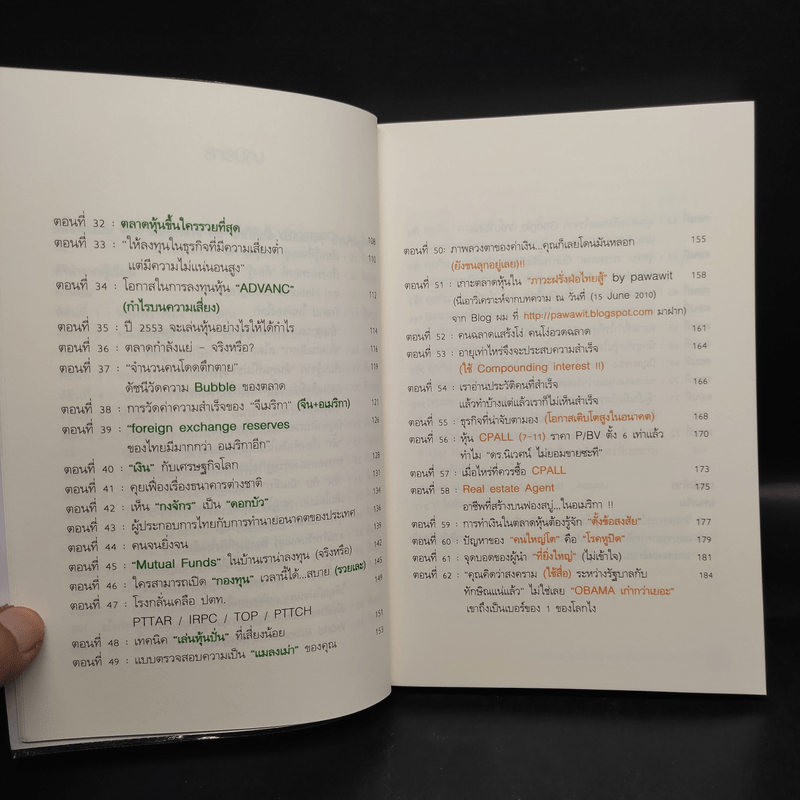 ตอนที่ 32 : ตลาดหุ้นขึ้นใครรวยที่สุด 108
ตอนที่ 33 : "ให้ลงทุนในธุรกิจที่มีความเสี่ยงต่ำ 110
แต่มีความไม่แน่นอนสูง"
ตอนที่ 34 : โอกาสในการลงทุนหุ้น "ADVANC" 112
(กำไรบนความเสี่ยง)
ตอนที่ 35 : ปี 2553 จะเล่นหุ้นอย่างไรให้ได้กำไร 114
ตอนที่ 36 : ตลาดกำลังแย่ - จริงหรือ? 116
ตอนที่ 37 : "จำนวนคนโดดตึกตาย" 119
ดัชนีวัดความ Bubble ของตลาด
ตอนที่ 38 : การวัดค่าความสำเร็จของ "จีเมริกา" (จีน+อเมริกา) 121
ตอนที่ 39 : "foreign exchange reserves 126
ของไทยมีมากกว่า อเมริกาอีก"
ตอนที่ 40 : "เงิน" กับเศรษฐกิจโลก 128
ตอนที่ 41 : คุยเฟื่องเรื่องธนาคารต่างชาติ 131
ตอนที่ 42 : เห็น "กงจักร" เป็น "ดอกบัว" 134
ตอนที่ 43 : ผู้ประกอบการไทยกับการทำนายอนาคตของประเทศ 136
ตอนที่ 44 : คนจนยิ่งจน
ตอนที่ 45 : "Mutual Funds" ในบ้านเราน่าลงทุน (จริงหรือ) 145
ตอนที่ 46 : ใครสามารถเปิด "กองทุน" เวลานี้ได้...สบาย (รวยเละ)
ตอนที่ 47 : โรงกลั่นเครือ ปตท. 149
PTTAR / IRPC / TOP / PTTCH
ตอนที่ 48 : เทคนิค "เล่นหุ้นปั่น" ที่เสี่ยงน้อย 151
ตอนที่ 49 : แบบตรวจสอบความเป็น "แมลงเม่า" ของคุณ 153
ตอนที่ 50: ภาพลวงตาของค่าเงิน...คุณก็เลยโดนมันหลอก 155
(ยังขนลุกอยู่เลย)!!
ตอนที่ 51 : เกาะตลาดหุ้นใน "ภาวะฝรั่งฝ่อไทยสู้" by pawawit 158
(นี่เอาวิเคราะห์จากบทความ ณ วันที่ (15 June 2010)
จาก Blog ผม ที่ http://pawawit.blogspot.com มาฝาก)
ตอนที่ 52 : คนฉลาดแสร้งโง่ คนโง่อวดฉลาด 161
ตอนที่ 53 : อายุเท่าไหร่จึงจะประสบความสำเร็จ 164
(ใช้ Compounding interest !!)
ตอนที่ 54 : เราอ่านประวัติคนที่สำเร็จ 166
แล้วทำบ้างแต่แล้วเราก็ไม่เห็นสำเร็จ
ตอนที่ 55 : ธุรกิจที่น่าจับตามอง (โอกาสเติบโตสูงในอนาคต) 168
ตอนที่ 56 : หุ้น CPALL (7-11) ราคา P/BV ตั้ง 6 เท่าแล้ว 170
ทำไม "ดร.นิเวศน์ ไม่ยอมขายซะที"
ตอนที่ 57 : เมื่อไหร่ที่ควรซื้อ CPALL 173
ตอนที่ 58 : Real estate Agent 175
อาชีพที่สร้างบนฟองสบู่...ในอเมริกา !!
ตอนที่ 59 : การทำเงินในตลาดหุ้นต้องรู้จัก "ตั้งข้อสงสัย" 177
ตอนที่ 60 : ปัญหาของ "คนใหญ่โต" คือ "โรคหูปิด" 179
ตอนที่ 61 : จุดบอดของผู้นำ "ที่ยิ่งใหญ่" (ไม่เข้าใจ) 181
ตอนที่ 62 : "คุณคิดว่าสงคราม (ใช้สื่อ) ระหว่างรัฐบาลกับ 184
ทักษิณแน่แล้ว" ไม่ใช่เลย "OBAMA เก๋ากว่าเยอะ"
เขาถึงเป็นเบอร์ของ 1 ของโลกไง